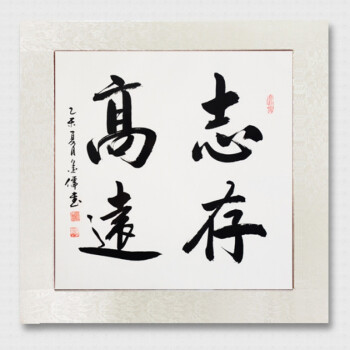 志存
高遠
乙未夏月